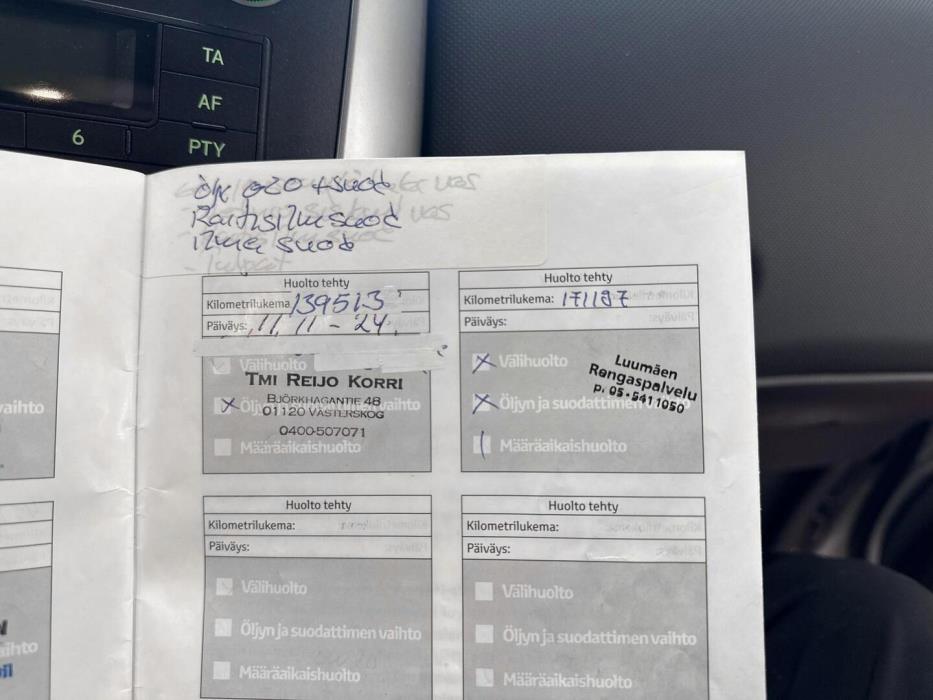 TA
AF
6
PTY
öljy 0W20 + suod
Raitisilmsuod
ilma suod
Huolto tehty
Kilometrilukema 139513
Päiväys: 11, 11 - 24.
Välihuolto
TMI REIJO KORRI
BJÖRKHAGANTIE 48
Öljyn ja suodattimen vaihto
01120 VÄSTERSKOG
0400-507071
Määräaikaishuolto
Huolto tehty
Kilometrilukema: 171197
Päiväys:
Välihuolto
Luumäen
Rengaspalvelu
p. 05-5411050
Öljyn ja suodattimen vaihto
Määräaikaishuolto
vaihto
Huolto tehty
Kilometrilukema:
Päiväys:
Välihuolto
Öljyn ja suodattimen vaihto
Määräaikaishuolto
Huolto tehty
Kilometrilukema:
Päiväys:
Välihuolto
Öljyn ja suodattimen vaihto
Määräaikaishuolto